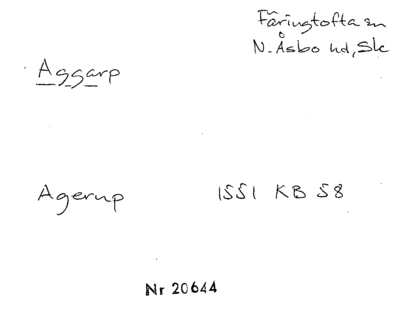 Färingtofta sn
N. Åsbo hd, Sk
Aggarp
Agerup 1551 KB 58
Nr 20644